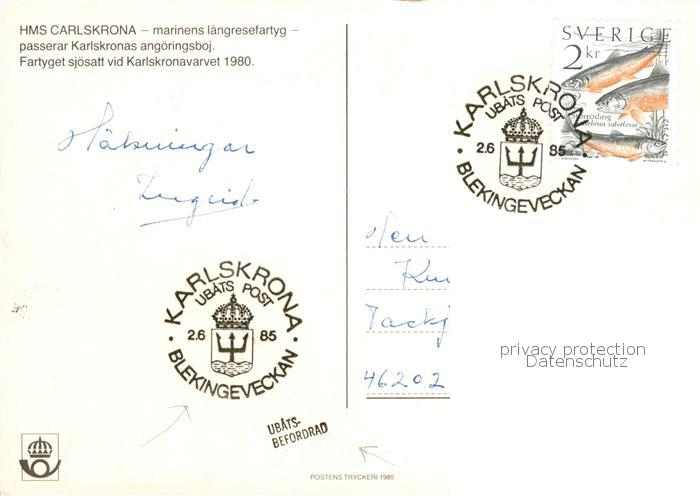 HMS CARLSKRONA – marinens långresefartyg –
passerar Karlskronas angöringsboj.
Fartyget sjösatt vid Karlskronavarvet 1980.
SVERIGE
2 kr
Storröding
salvelinus
KARLSKRONA
UBÅTS POST
2.6 85
BLEKINGEVECKAN
Hälsningar
Ingrid
Herr
46202
KARLSKRONA
UBÅTS POST
2.6 85
BLEKINGEVECKAN
UBÅTS-
BEFORDRAD
privacy protection
Datenschutz
POSTENS TRYCKERI 1985